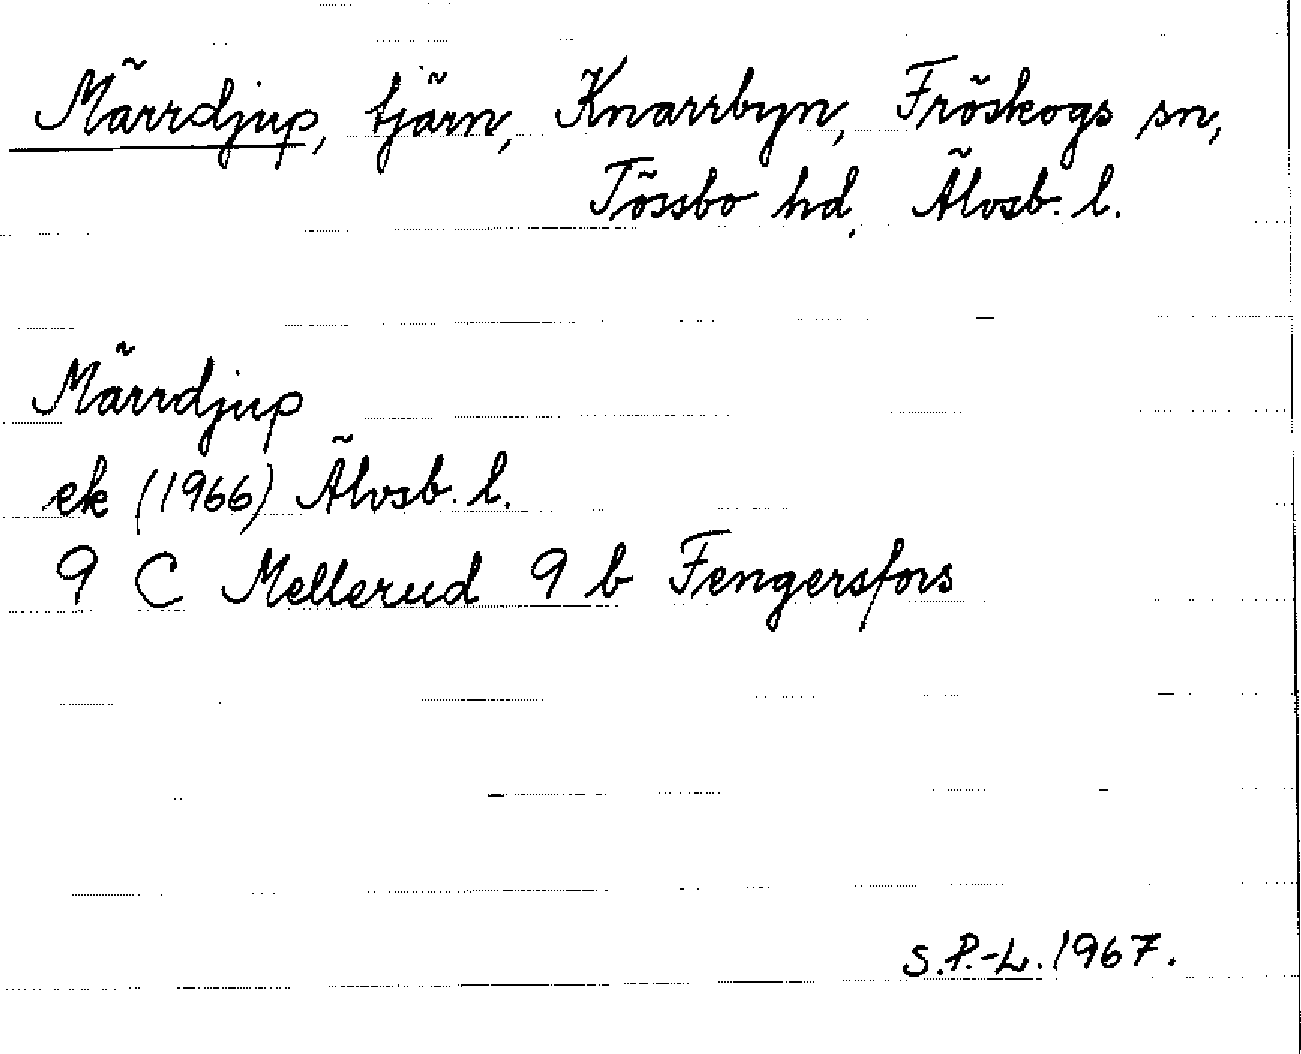 Märrdjup, tjärn, Knarrbyn, Fröskogs sn,
Tössbo hd, Älvsb. l.
Märrdjup
ek (1966) Älvsb. l.
9 C Mellerud 9 b Fengersfors
S.P.-L. 1967.